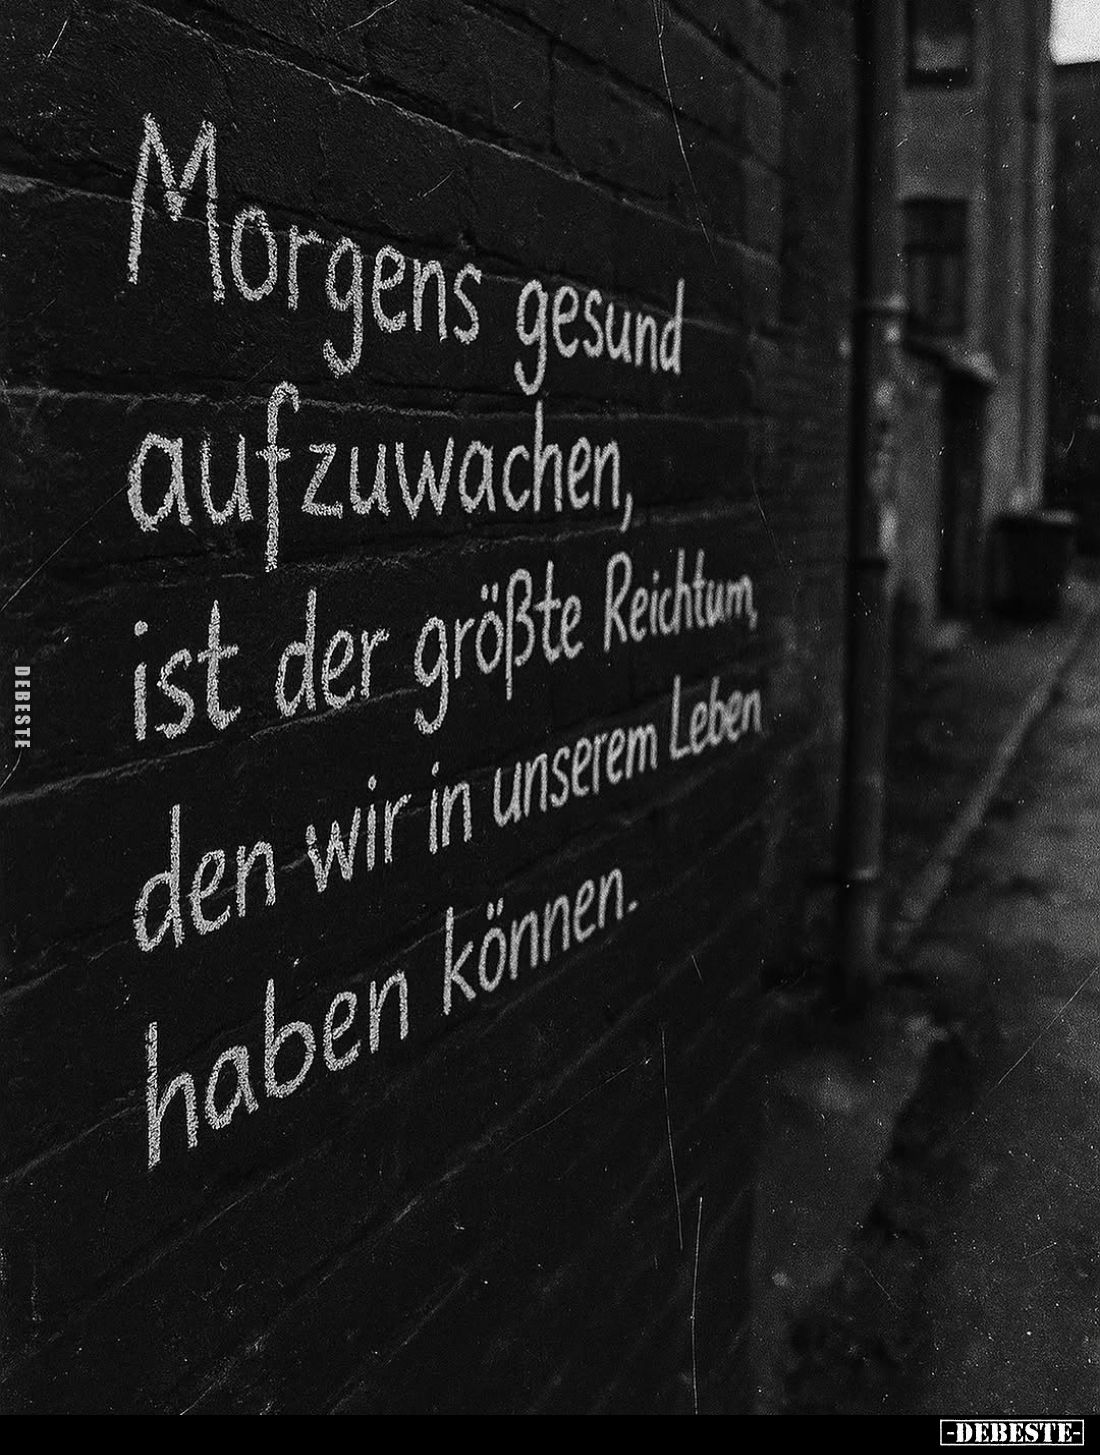 Morgens gesund
aufzuwachen,
ist der größte Reichtum,
den wir in unserem Leben
haben können.
DEBESTE
-DEBESTE-